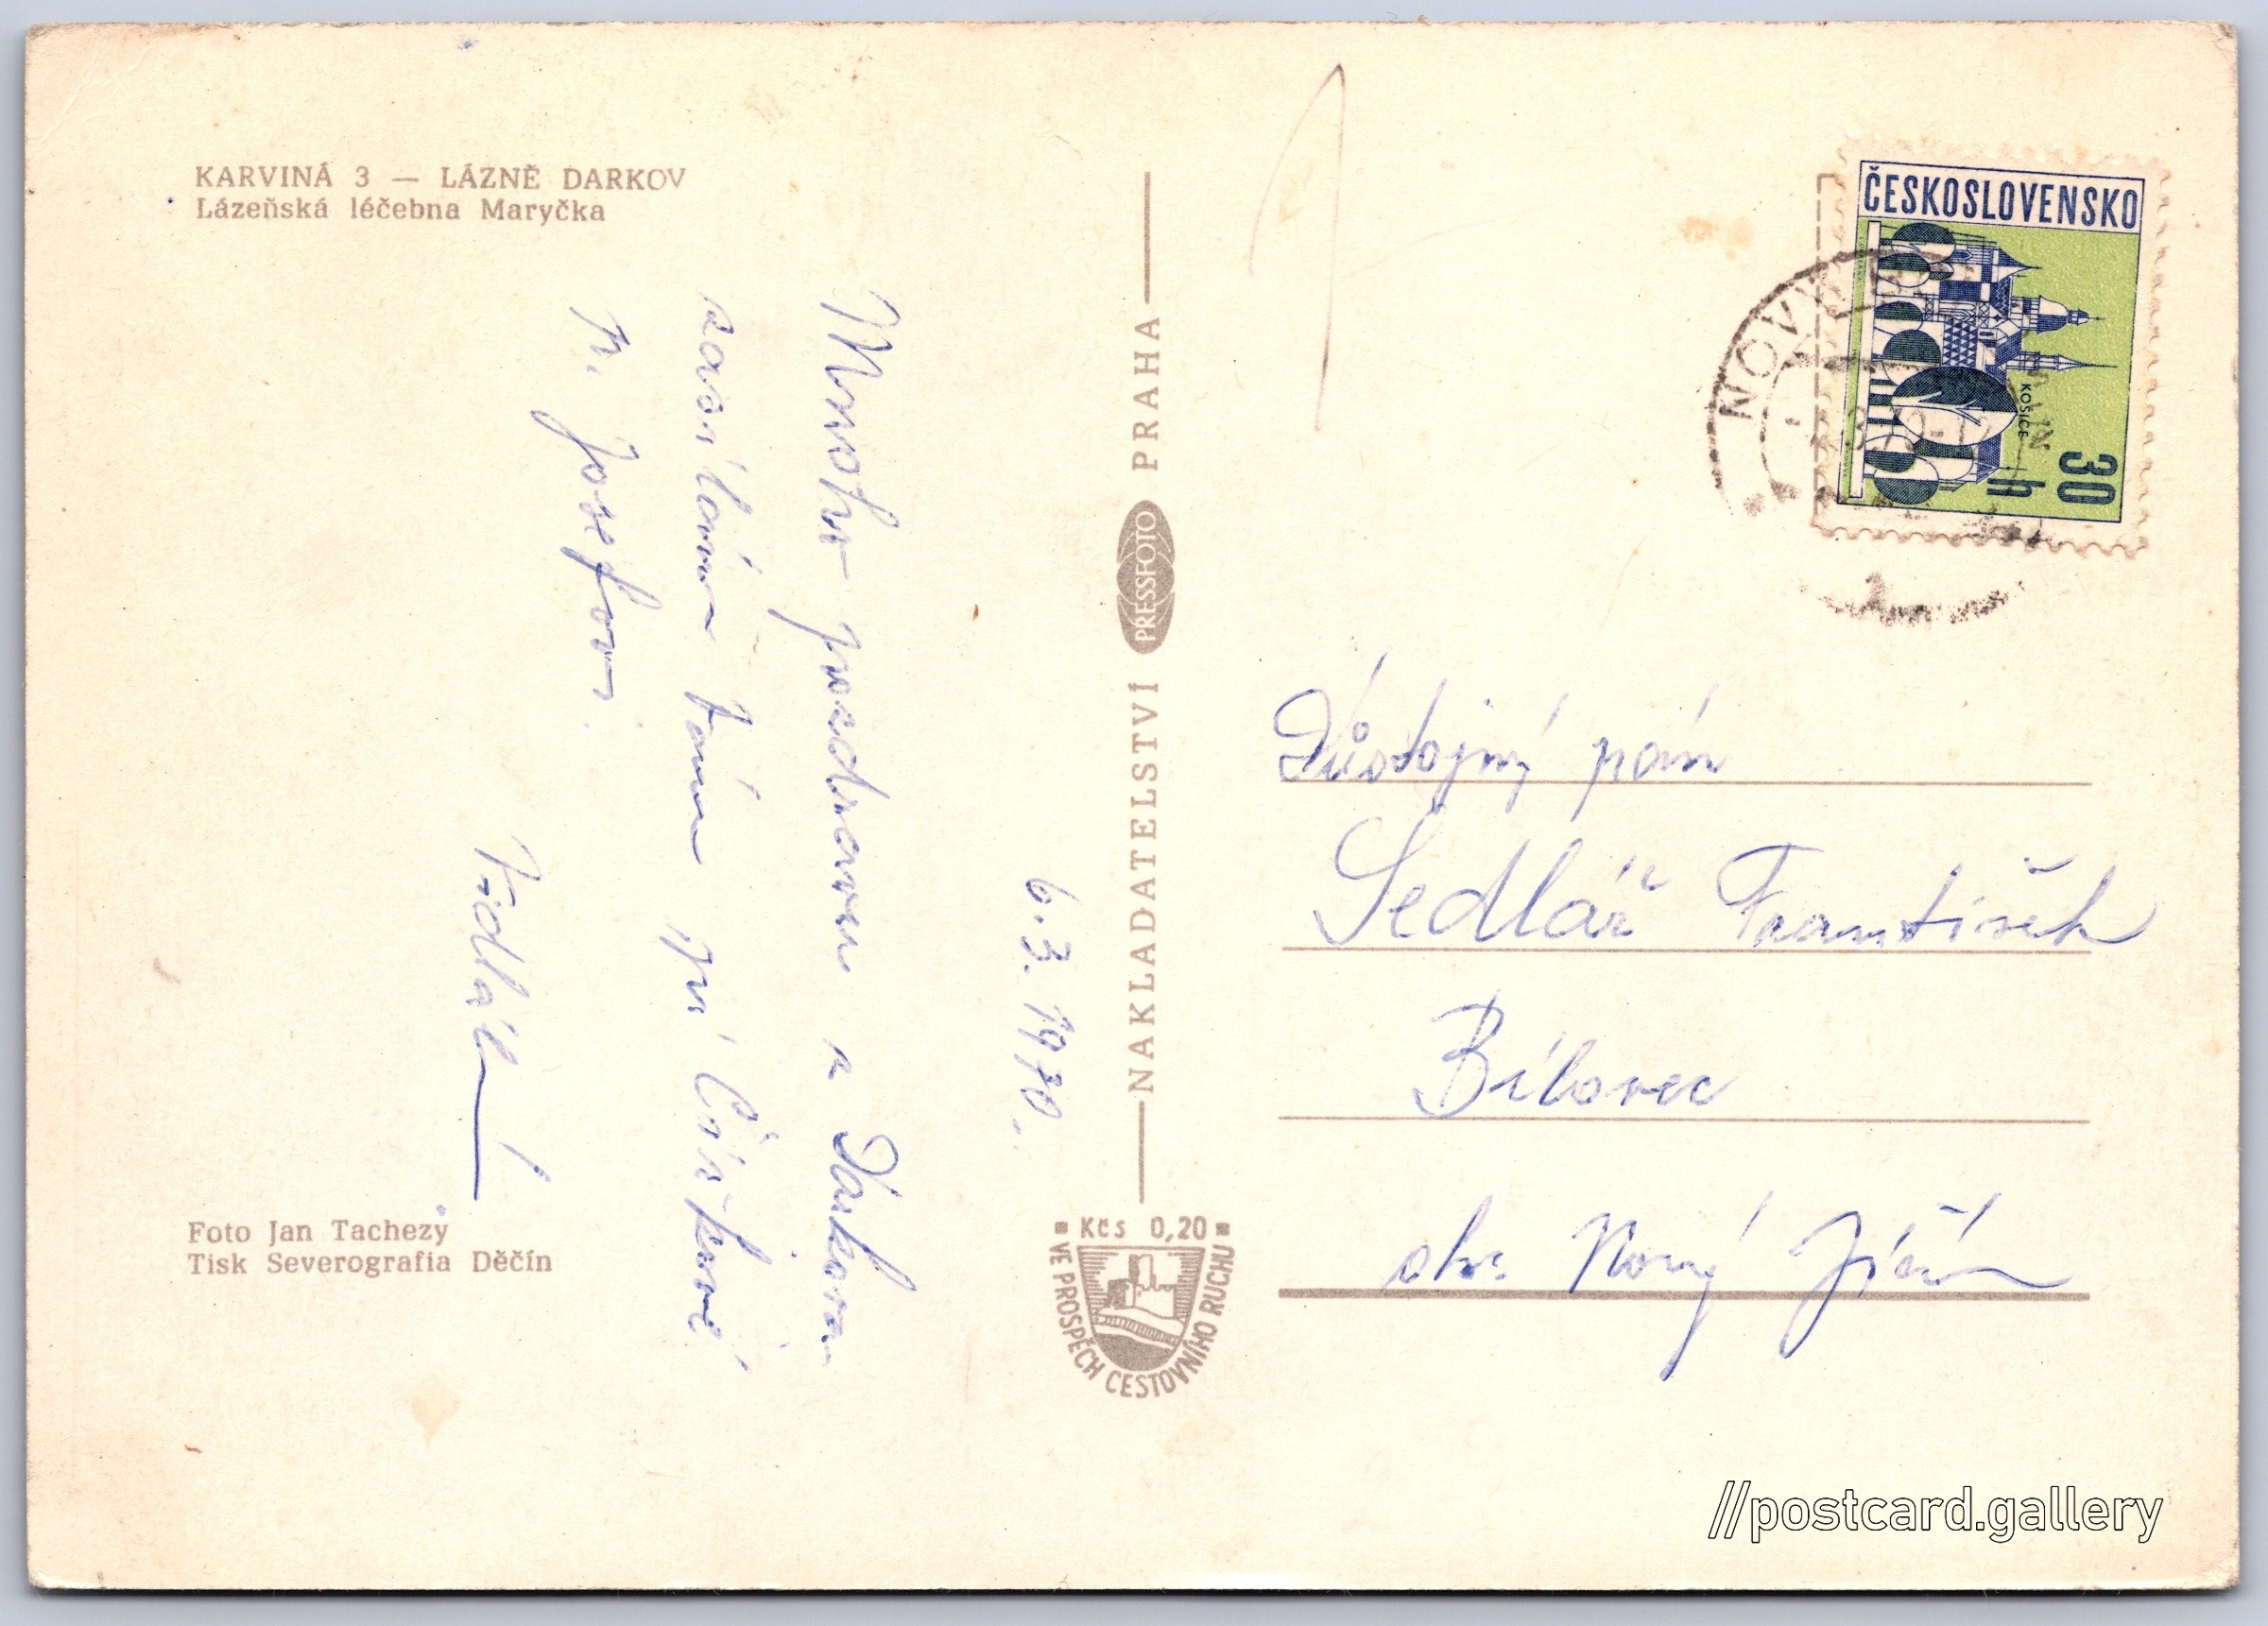 KARVINÁ 3 — LÁZNĚ DARKOV
Lázeňská léčebna Maryčka
6.3.1970.
Mnoho pozdravem z Darkova
zasílám Vám při
p. Josefov
Foto Jan Tachezy
Tisk Severografia Děčín
NAKLADATELSTVÍ PRESSFOTO PRAHA
Kčs 0,20
VE PROSPĚCH CESTOVNÍHO RUCHU
ČESKOSLOVENSKO
KOŠICE
30 h
NOVÝ
Důstojný pán
Sedlář František
Bílovec
okr. Nový Jičín
//postcard.gallery